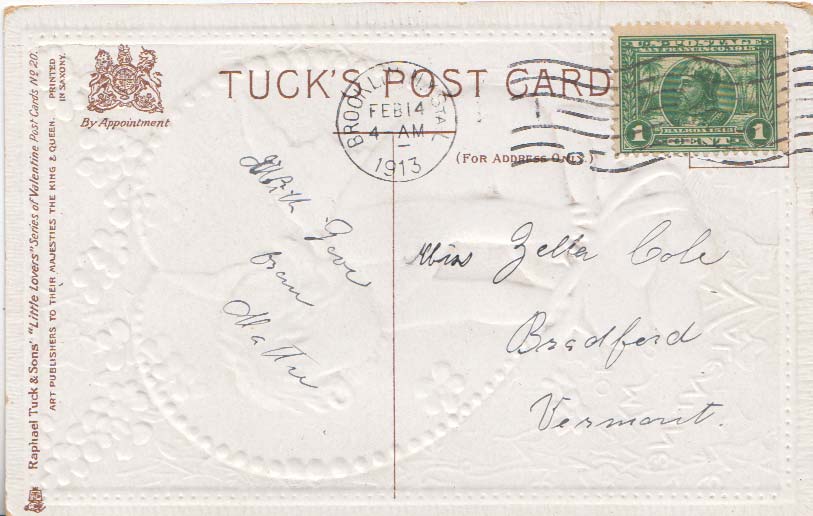 Raphael Tuck & Sons' "Little Lovers" Series of Valentine Post Cards Nº 20.
ART PUBLISHERS TO THEIR MAJESTIES THE KING & QUEEN.
PRINTED
IN SAXONY.
By Appointment
TUCK'S POST CARD
(FOR ADDRESS ONLY.)
BROOKLYN
FEB 14
4-AM
1913
U·S·POSTAGE
SAN FRANCISCO 1915
BALBOA 1513
1 CENT 1
With Love
from
Mattie
Miss Zella Cole
Bradford
Vermont.